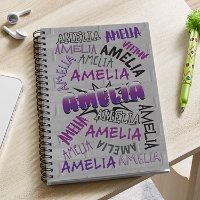 AMELIA AMELIA
AMELIA AMELIA
AMELIA AMELIA
AMELIA
AMELIA
AMELIA
AMELIA AMELIA
AMELIA
AMELIA
AMELIA AMELIA
AMELIA AMELIA